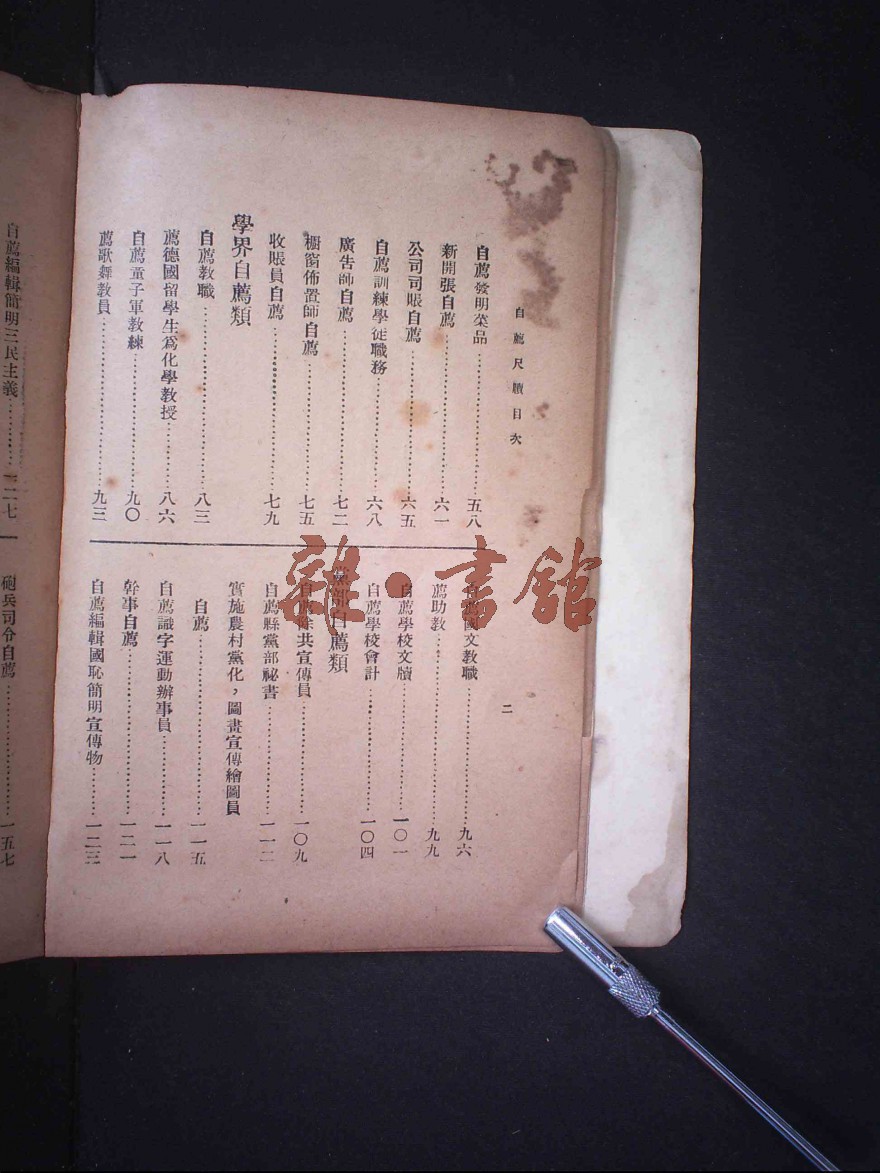 自薦尺牘目次
二
自薦發明菜品………五八
新開張自薦………六一
公司司賬自薦………六五
自薦訓練學徒職務………六八
廣告師自薦………七二
櫥窗佈置師自薦………七五
收賬員自薦………七九
學界自薦類
自薦教職………八三
薦德國留學生爲化學教授………八六
自薦童子軍教練………九〇
薦歌舞教員………九三
自薦國文教職………九六
薦助教………九九
自薦學校文牘………一〇一
自薦學校會計………一〇四
黨部自薦類
自薦除共宣傳員………一〇九
自薦縣黨部祕書………一一二
實施農村黨化，圖畫宣傳繪圖員
自薦………一一五
自薦識字運動辦事員………一一八
幹事自薦………一二一
自薦編輯國恥簡明宣傳物………一二三
自薦編輯簡明三民主義………一二七
砲兵司令自薦………一五七
雜·書館